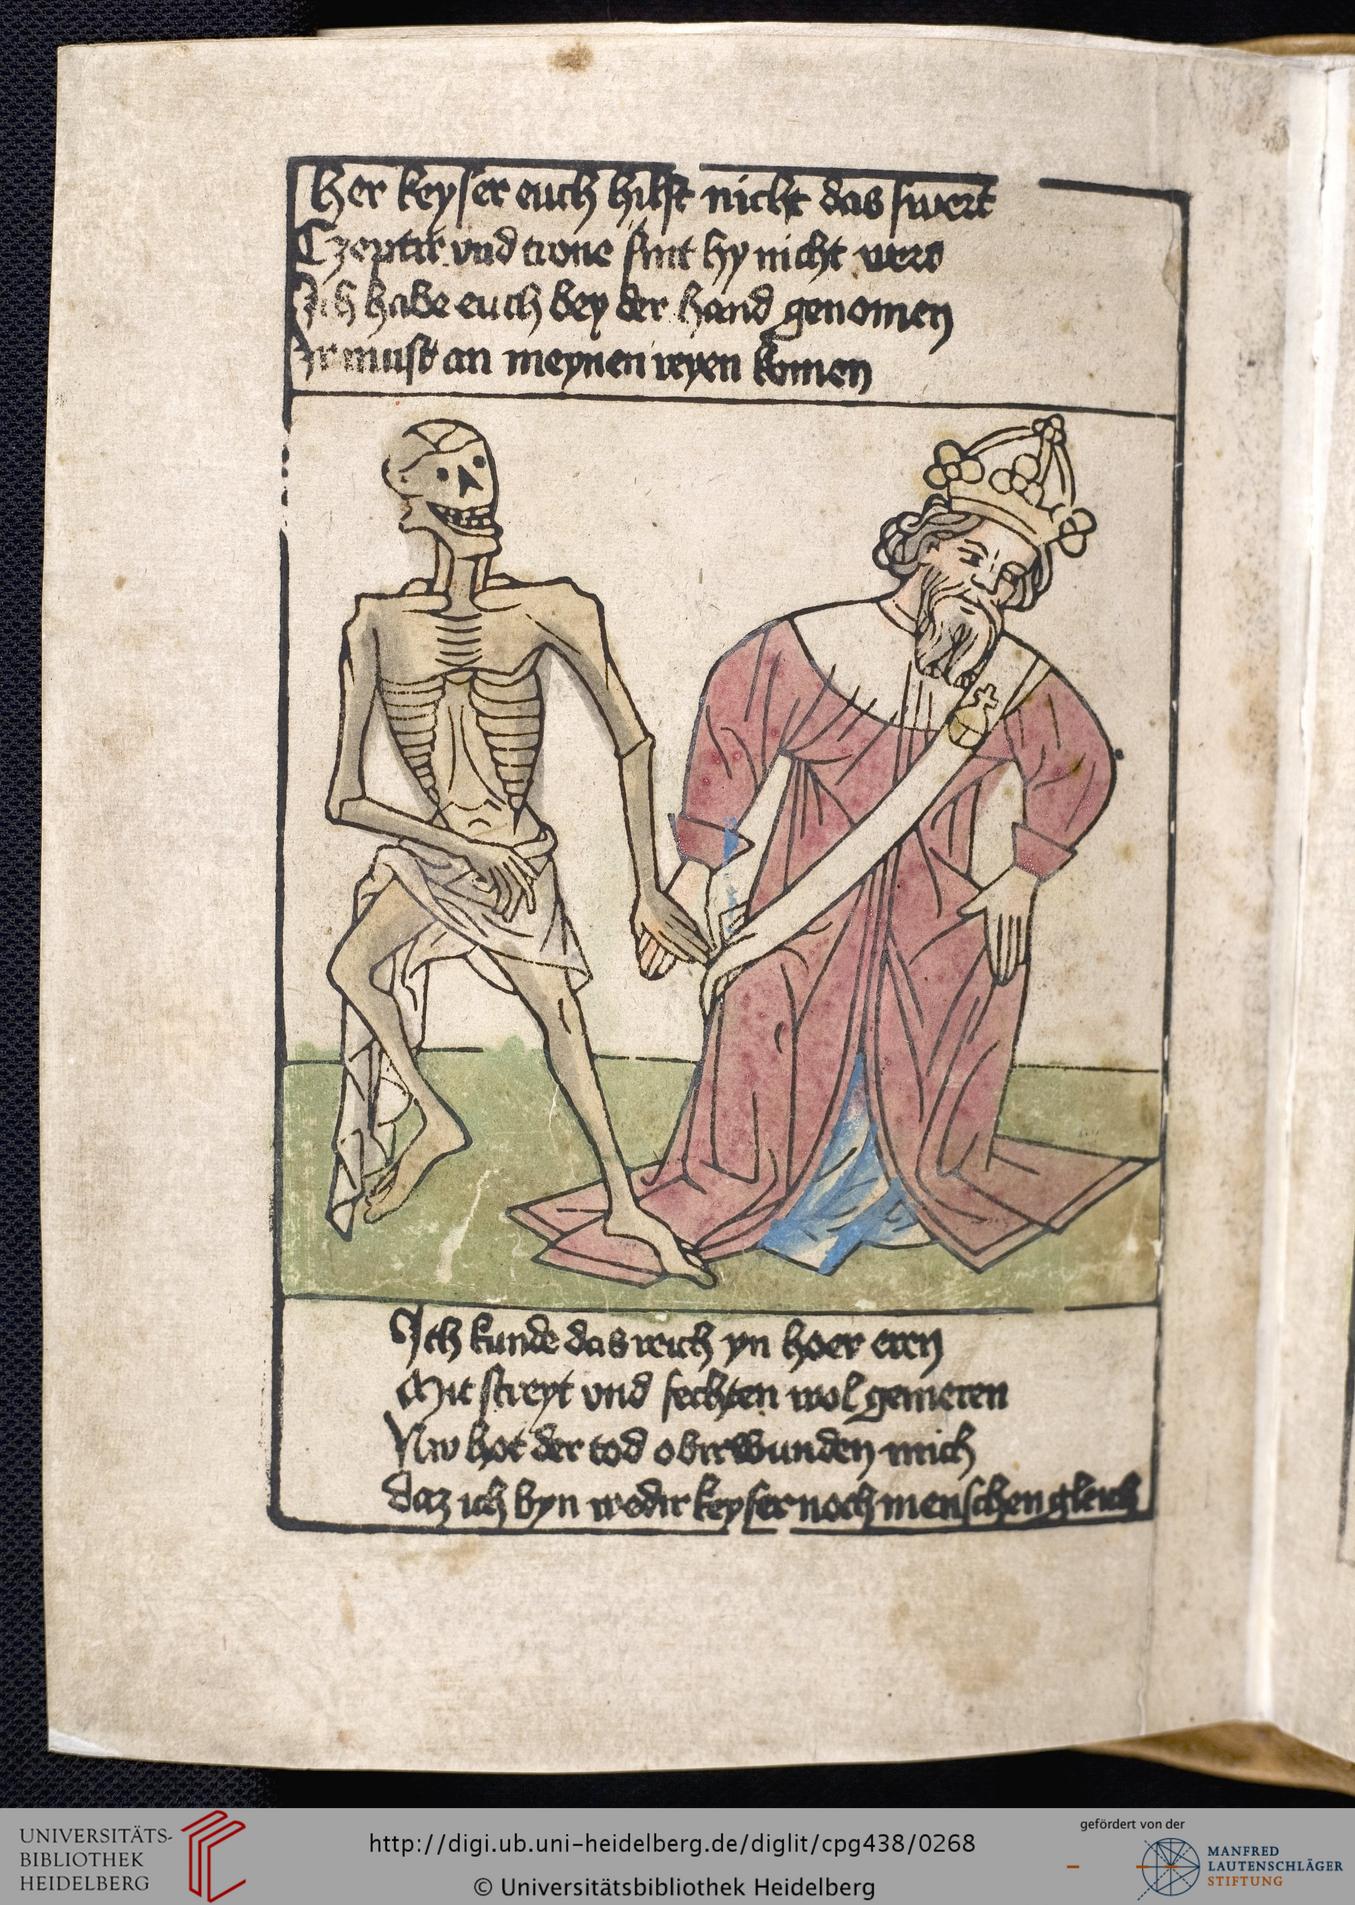 Her keyser euch hilft nicht das swert
Czeptir vnd crone sint hy nicht wert
Ich habe euch bey der hand genomen
Ir must an meynen reyen komen
Ich kunde das reich yn hoer eren
Mit streyt vnd fechten wol gemeren
Nw hot der tod obirwunden mich
Daz ich byn wedir keyser noch menschen gleich
UNIVERSITÄTS-
BIBLIOTHEK
HEIDELBERG
http://digi.ub.uni-heidelberg.de/diglit/cpg438/0268
© Universitätsbibliothek Heidelberg
gefördert von der
MANFRED
LAUTENSCHLÄGER
STIFTUNG